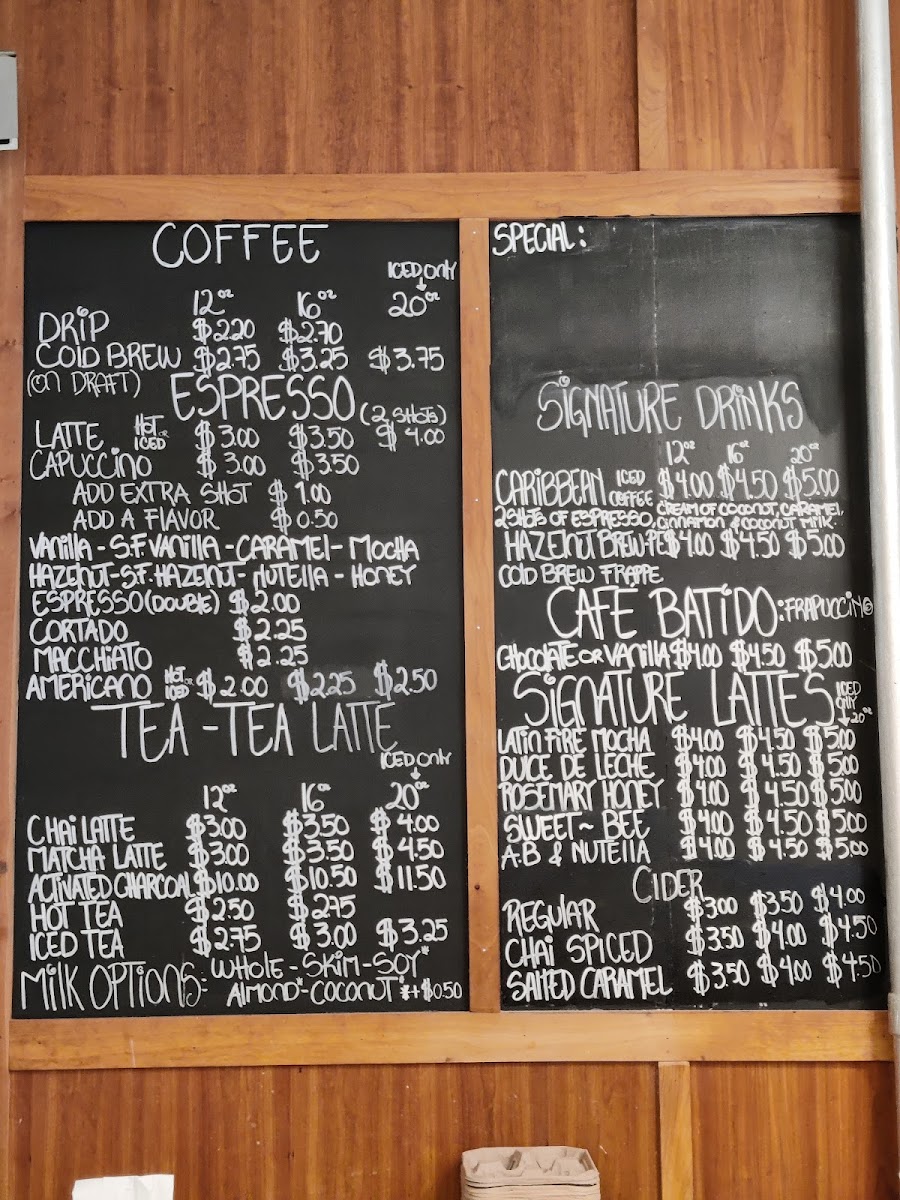 COFFEE
ICED ONLY
12oz 16oz 20oz
DRIP $2.20 $2.70
COLD BREW $2.75 $3.25 $3.75
(ON DRAFT)
ESPRESSO (2 SHOTS)
LATTE HOT OR ICED $3.00 $3.50 $4.00
CAPUCCINO $3.00 $3.50
ADD EXTRA SHOT $1.00
ADD A FLAVOR $0.50
VANILLA - S.F. VANILLA - CARAMEL - MOCHA
HAZELNUT - S.F. HAZELNUT - NUTELLA - HONEY
ESPRESSO (DOUBLE) $2.00
CORTADO $2.25
MACCHIATO $2.25
AMERICANO HOT OR ICED $2.00 $2.25 $2.50
TEA - TEA LATTE
ICED ONLY
12oz 16oz 20oz
CHAI LATTE $3.00 $3.50 $4.00
MATCHA LATTE $3.00 $3.50 $4.50
ACTIVATED CHARCOAL $10.00 $10.50 $11.50
HOT TEA $2.50 $2.75
ICED TEA $2.75 $3.00 $3.25
MILK OPTIONS: WHOLE - SKIM - SOY*
ALMOND* - COCONUT* *+$0.50
SPECIAL:
SIGNATURE DRINKS
12oz 16oz 20oz
CARIBBEAN ICED COFFEE $4.00 $4.50 $5.00
2 SHOTS OF ESPRESSO, CREAM OF COCONUT, CARAMEL,
CINNAMON & COCONUT MILK.
HAZELNUT BREW-PE $4.00 $4.50 $5.00
COLD BREW FRAPPE
CAFÉ BATIDO: FRAPUCCINO
CHOCOLATE OR VANILLA $4.00 $4.50 $5.00
SIGNATURE LATTES ICED ONLY
20oz
LATIN FIRE MOCHA $4.00 $4.50 $5.00
DULCE DE LECHE $4.00 $4.50 $5.00
ROSEMARY HONEY $4.00 $4.50 $5.00
SWEET~BEE $4.00 $4.50 $5.00
A.B & NUTELLA $4.00 $4.50 $5.00
CIDER
REGULAR $3.00 $3.50 $4.00
CHAI SPICED $3.50 $4.00 $4.50
SALTED CARAMEL $3.50 $4.00 $4.50